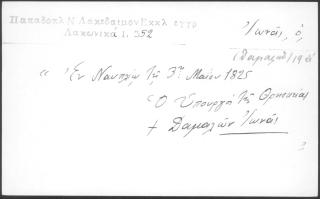 Παπαδοπλ Ν Λακεδαιμον Εκκλ εγγρ
Λακωνικά 1. 352
Ἰωνᾶς, ὁ,
(Δαμαλῶν)
" Ἐν Ναυπλίῳ τῇ 3ῃ Μαΐου 1825
Ὁ Ὑπουργὸς τῆς Θρησκείας
+ Δαμαλῶν Ἰωνᾶς